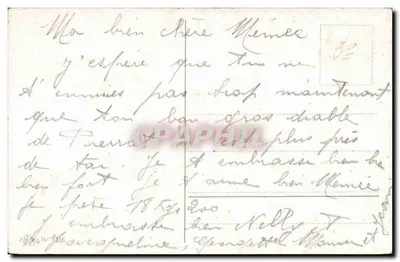 Ma bien chère Mémée
J'espère que tu ne
t'ennuies pas trop maintenant
que ton bon gros diable
de Pierrot est plus près
de toi. Je t'embrasse bien bien
bien fort je t'aime bien Mémée
je pèse 18 Kgs 200.
J'embrasse bien Nelly
Jacqueline, Georgette et
30
CPAPHIL